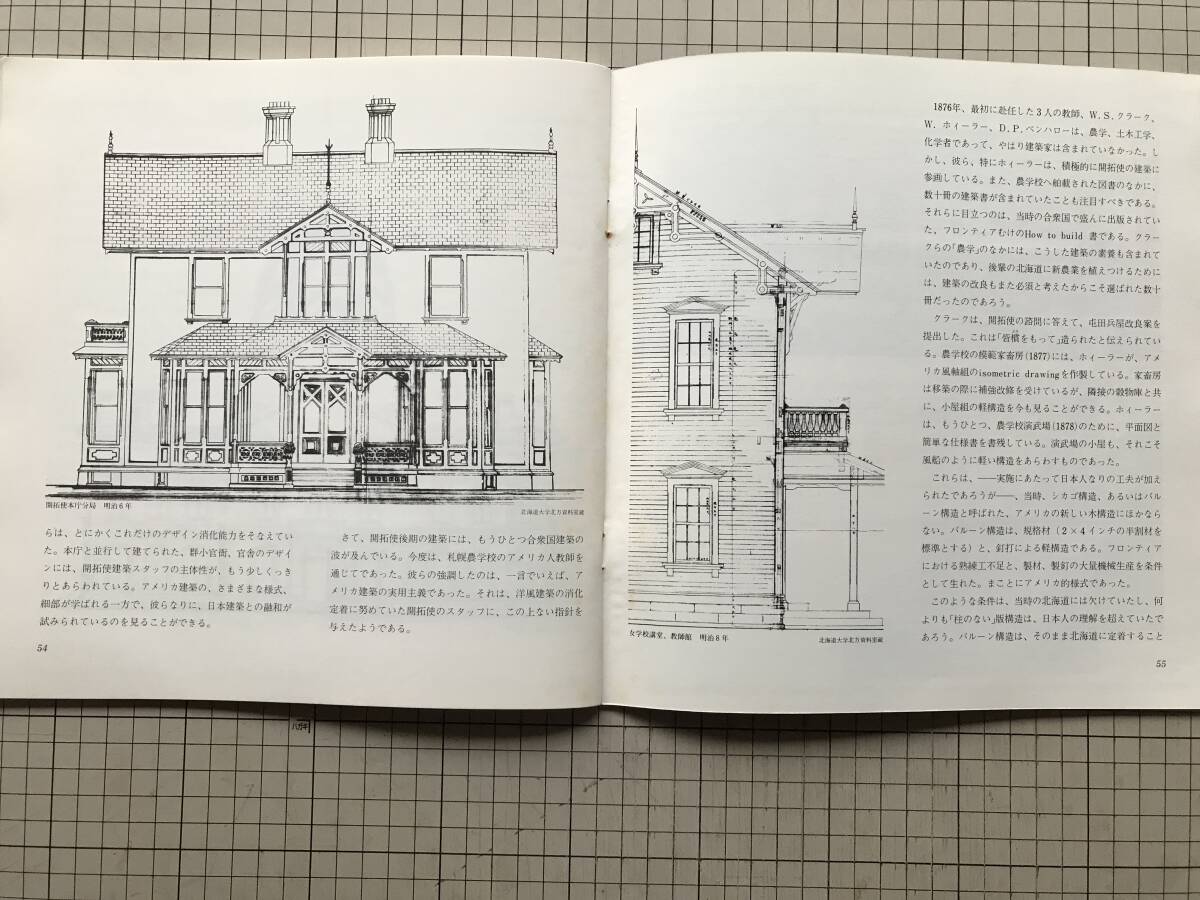 開拓使本庁分局　明治6年
北海道大学北方資料室蔵
らは、とにかくこれだけのデザイン消化能力をそなえてい
た。本庁と並行して建てられた、群小官衙、官舎のデザイ
ンには、開拓使建築スタッフの主体性が、もう少しくっき
りとあらわれている。アメリカ建築の、さまざまな様式、
細部が学ばれる一方で、彼らなりに、日本建築との融和が
試みられているのを見ることができる。
さて、開拓使後期の建築には、もうひとつ合衆国建築の
波が及んでいる。今度は、札幌農学校のアメリカ人教師を
通じてであった。彼らの強調したのは、一言でいえば、ア
メリカ建築の実用主義であった。それは、洋風建築の消化
定着に努めていた開拓使のスタッフに、この上ない指針を
与えたようである。
54
女学校講堂、教師館　明治8年
北海道大学北方資料室蔵
1876年、最初に赴任した3人の教師、W.S.クラーク、
W．ホィーラー、D.P.ペンハローは、農学、土木工学、
化学者であって、やはり建築家は含まれていなかった。し
かし、彼ら、特にホィーラーは、積極的に開拓使の建築に
参画している。また、農学校へ舶載された図書のなかに、
数十冊の建築書が含まれていたことも注目すべきである。
それらに目立つのは、当時の合衆国で盛んに出版されてい
た、フロンティアむけのHow to build 書である。クラー
クらの「農学」のなかには、こうした建築の素養も含まれて
いたのであり、後輩の北海道に新農業を植えつけるために
は、建築の改良もまた必須と考えたからこそ選ばれた数十
冊だったのであろう。
クラークは、開拓使の諮問に答えて、屯田兵屋改良案を
提出した。これは「皆憤をもって」造られたと伝えられてい
る。農学校の模範家畜房(1877)には、ホィーラーが、アメ
リカ風軸組のisometric drawingを作製している。家畜房
は移築の際に補強改修を受けているが、隣接の穀物庫と共
に、小屋組の軽構造を今も見ることができる。ホィーラー
は、もうひとつ、農学校演武場(1878)のために、平面図と
簡単な仕様書を書残している。演武場の小屋も、それこそ
風船のように軽い構造をあらわすものであった。
これらは、――実施にあたって日本人なりの工夫が加え
られたであろうが――、当時、シカゴ構造、あるいはバル
ーン構造と呼ばれた、アメリカの新しい木構造にほかなら
ない。バルーン構造は、規格材（2×4インチの半割材を
標準とする）と、釘打による軽構造である。フロンティア
における熟練工不足と、製材、製釘の大量機械生産を条件
として生れた。まことにアメリカ的様式であった。
このような条件は、当時の北海道には欠けていたし、何
よりも「柱のない」版構造は、日本人の理解を超えていたで
あろう。バルーン構造は、そのまま北海道に定着すること
55
ハガキ